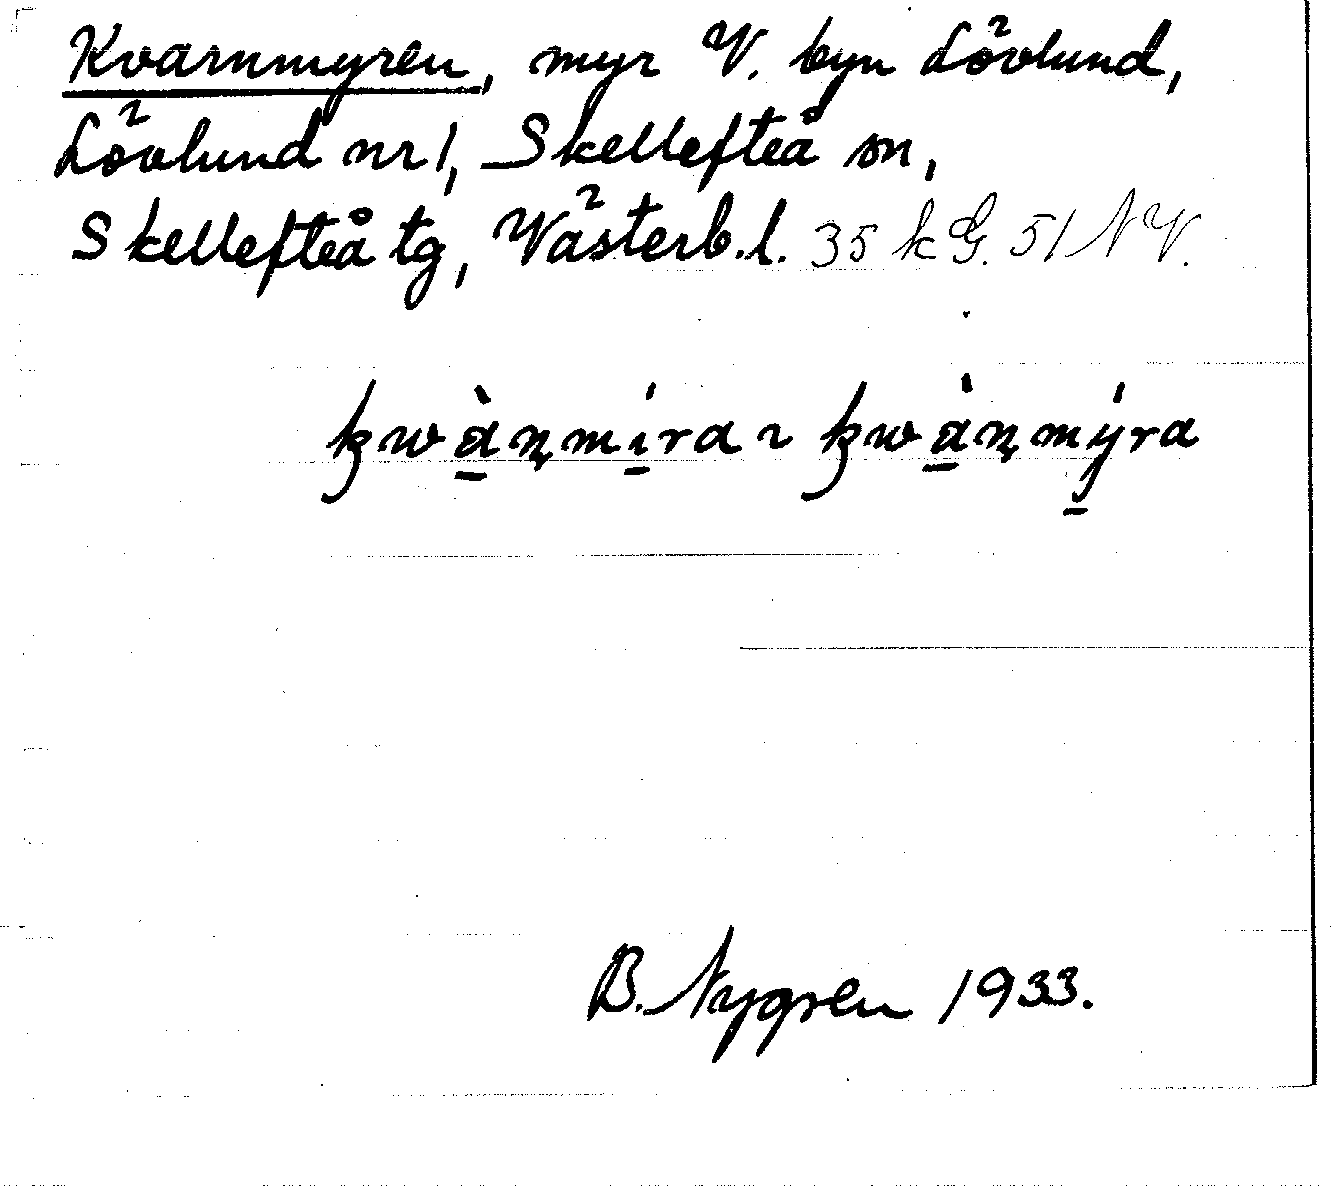 Kvarnmyren, myr V. byn Lövlund,
Lövlund nr 1, Skellefteå sn,
Skellefteå tg, Västerb. l. 35 k G. 51 NV.
kwà̠ṇmí̠ra ~ kwà̠ṇmý̠ra
B. Nygren 1933.